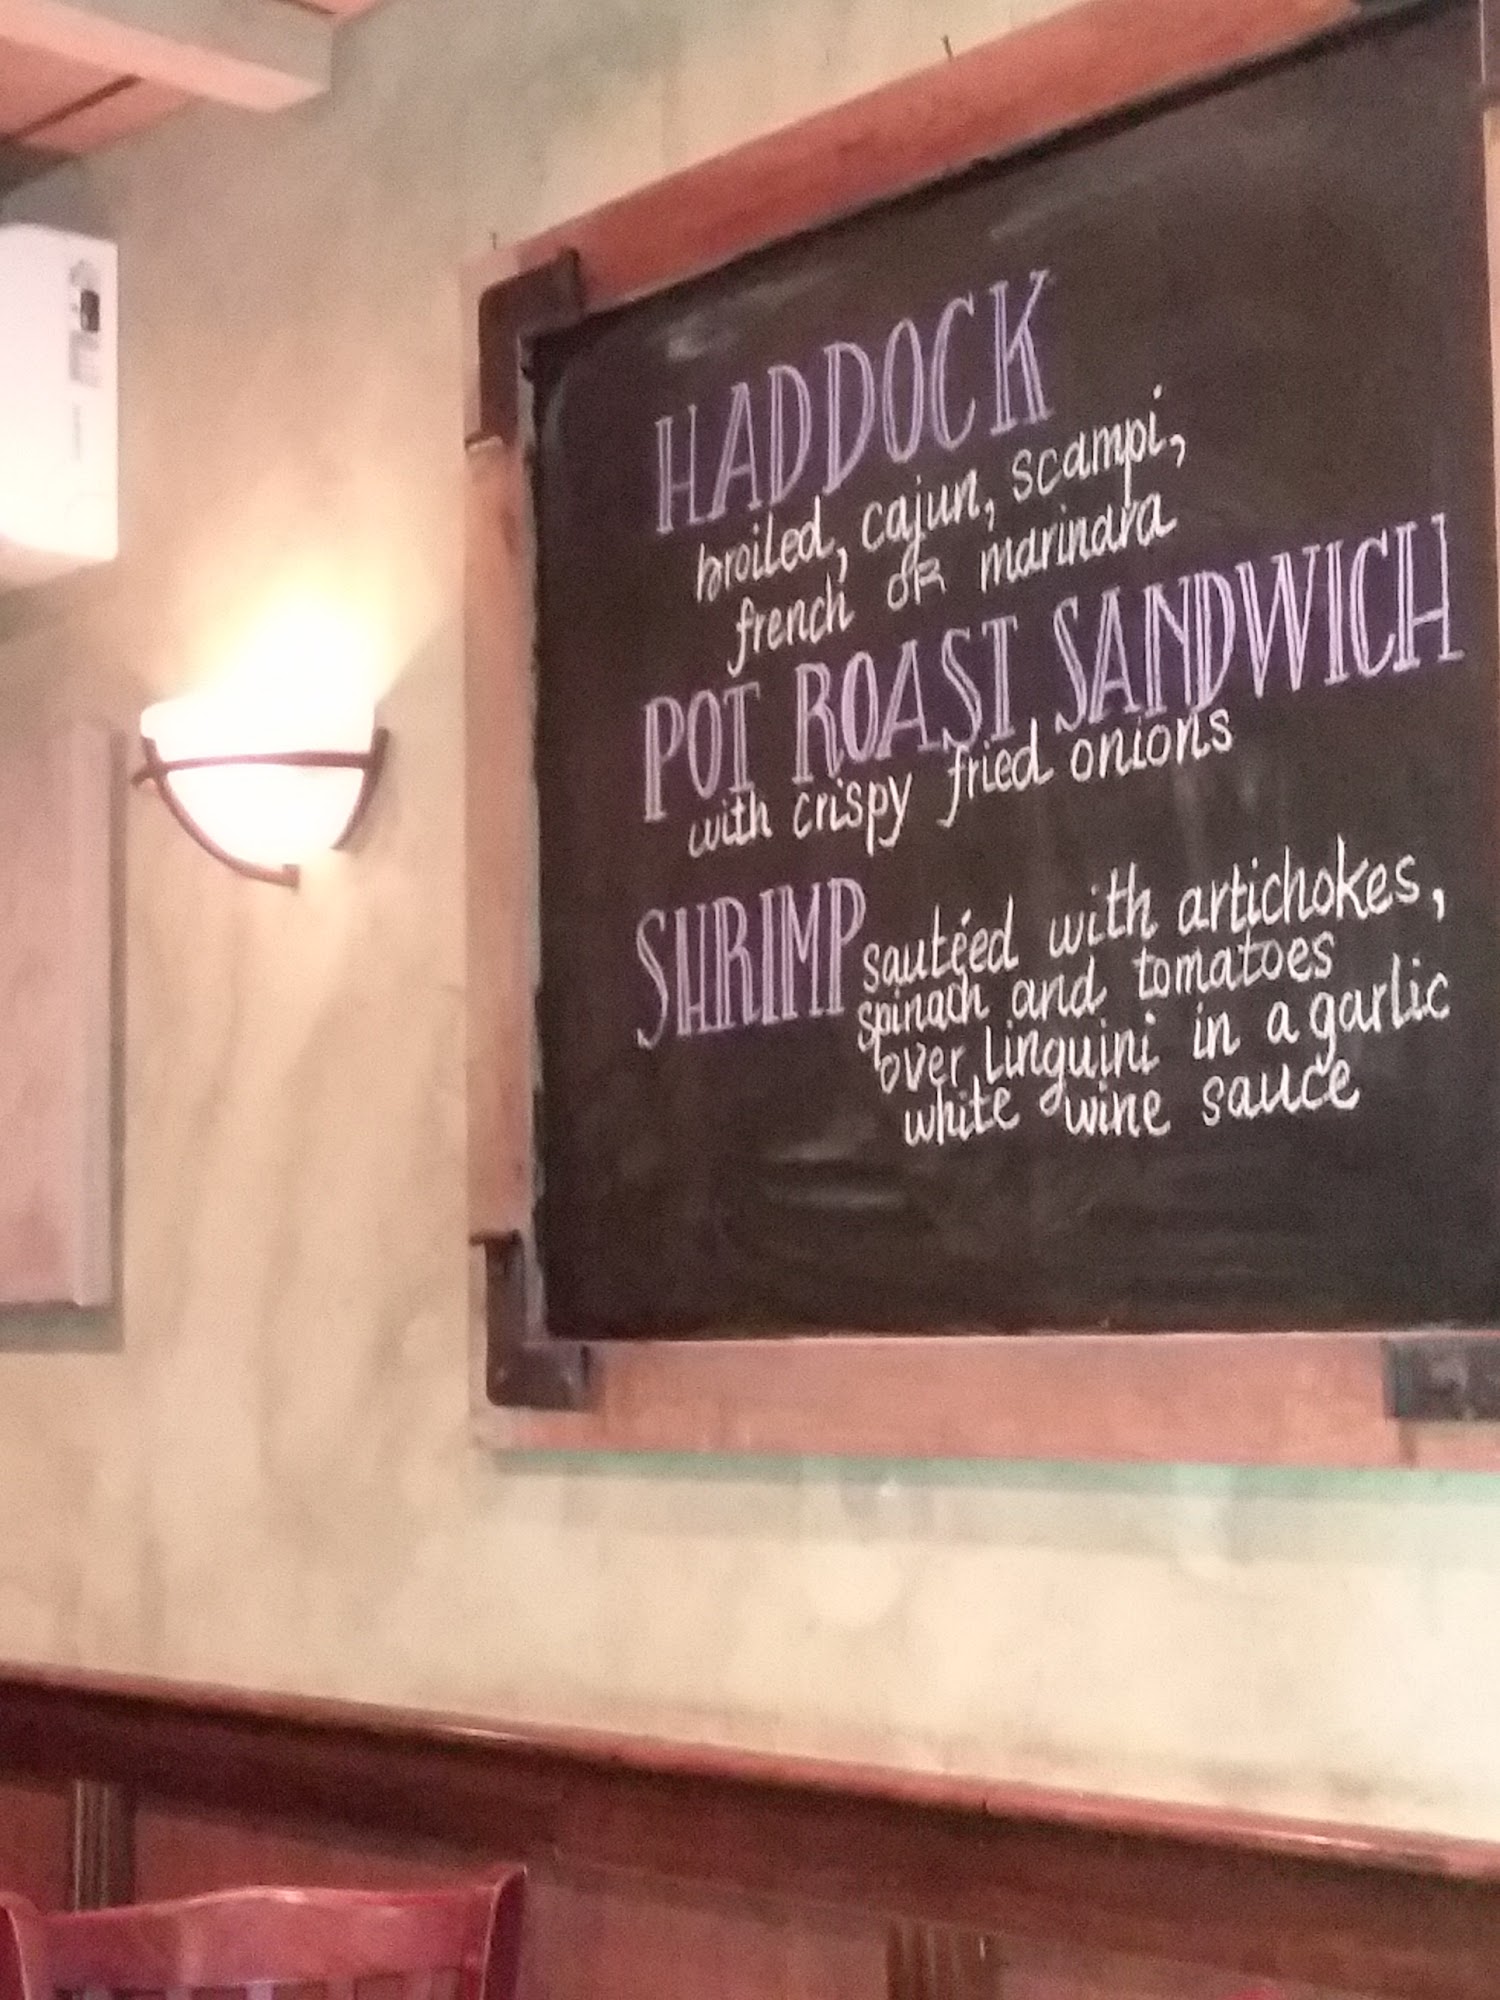 HADDOCK
broiled, cajun, scampi,
french OR marinara
POT ROAST SANDWICH
with crispy fried onions
SHRIMP sautéed with artichokes,
spinach and tomatoes
over linguini in a garlic
white wine sauce